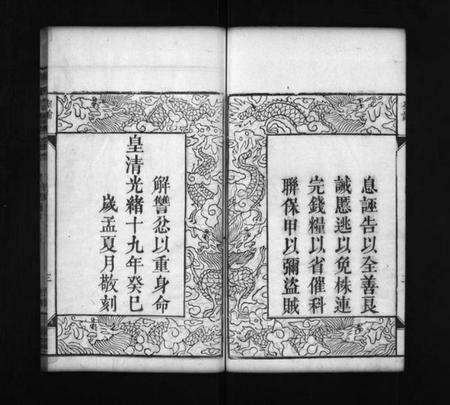 息誣告以全善良
誡匿逃以免株連
完錢糧以省催科
聯保甲以彌盜賊
解讐忿以重身命
皇清光緒十九年癸巳
歲孟夏月敬刻
三